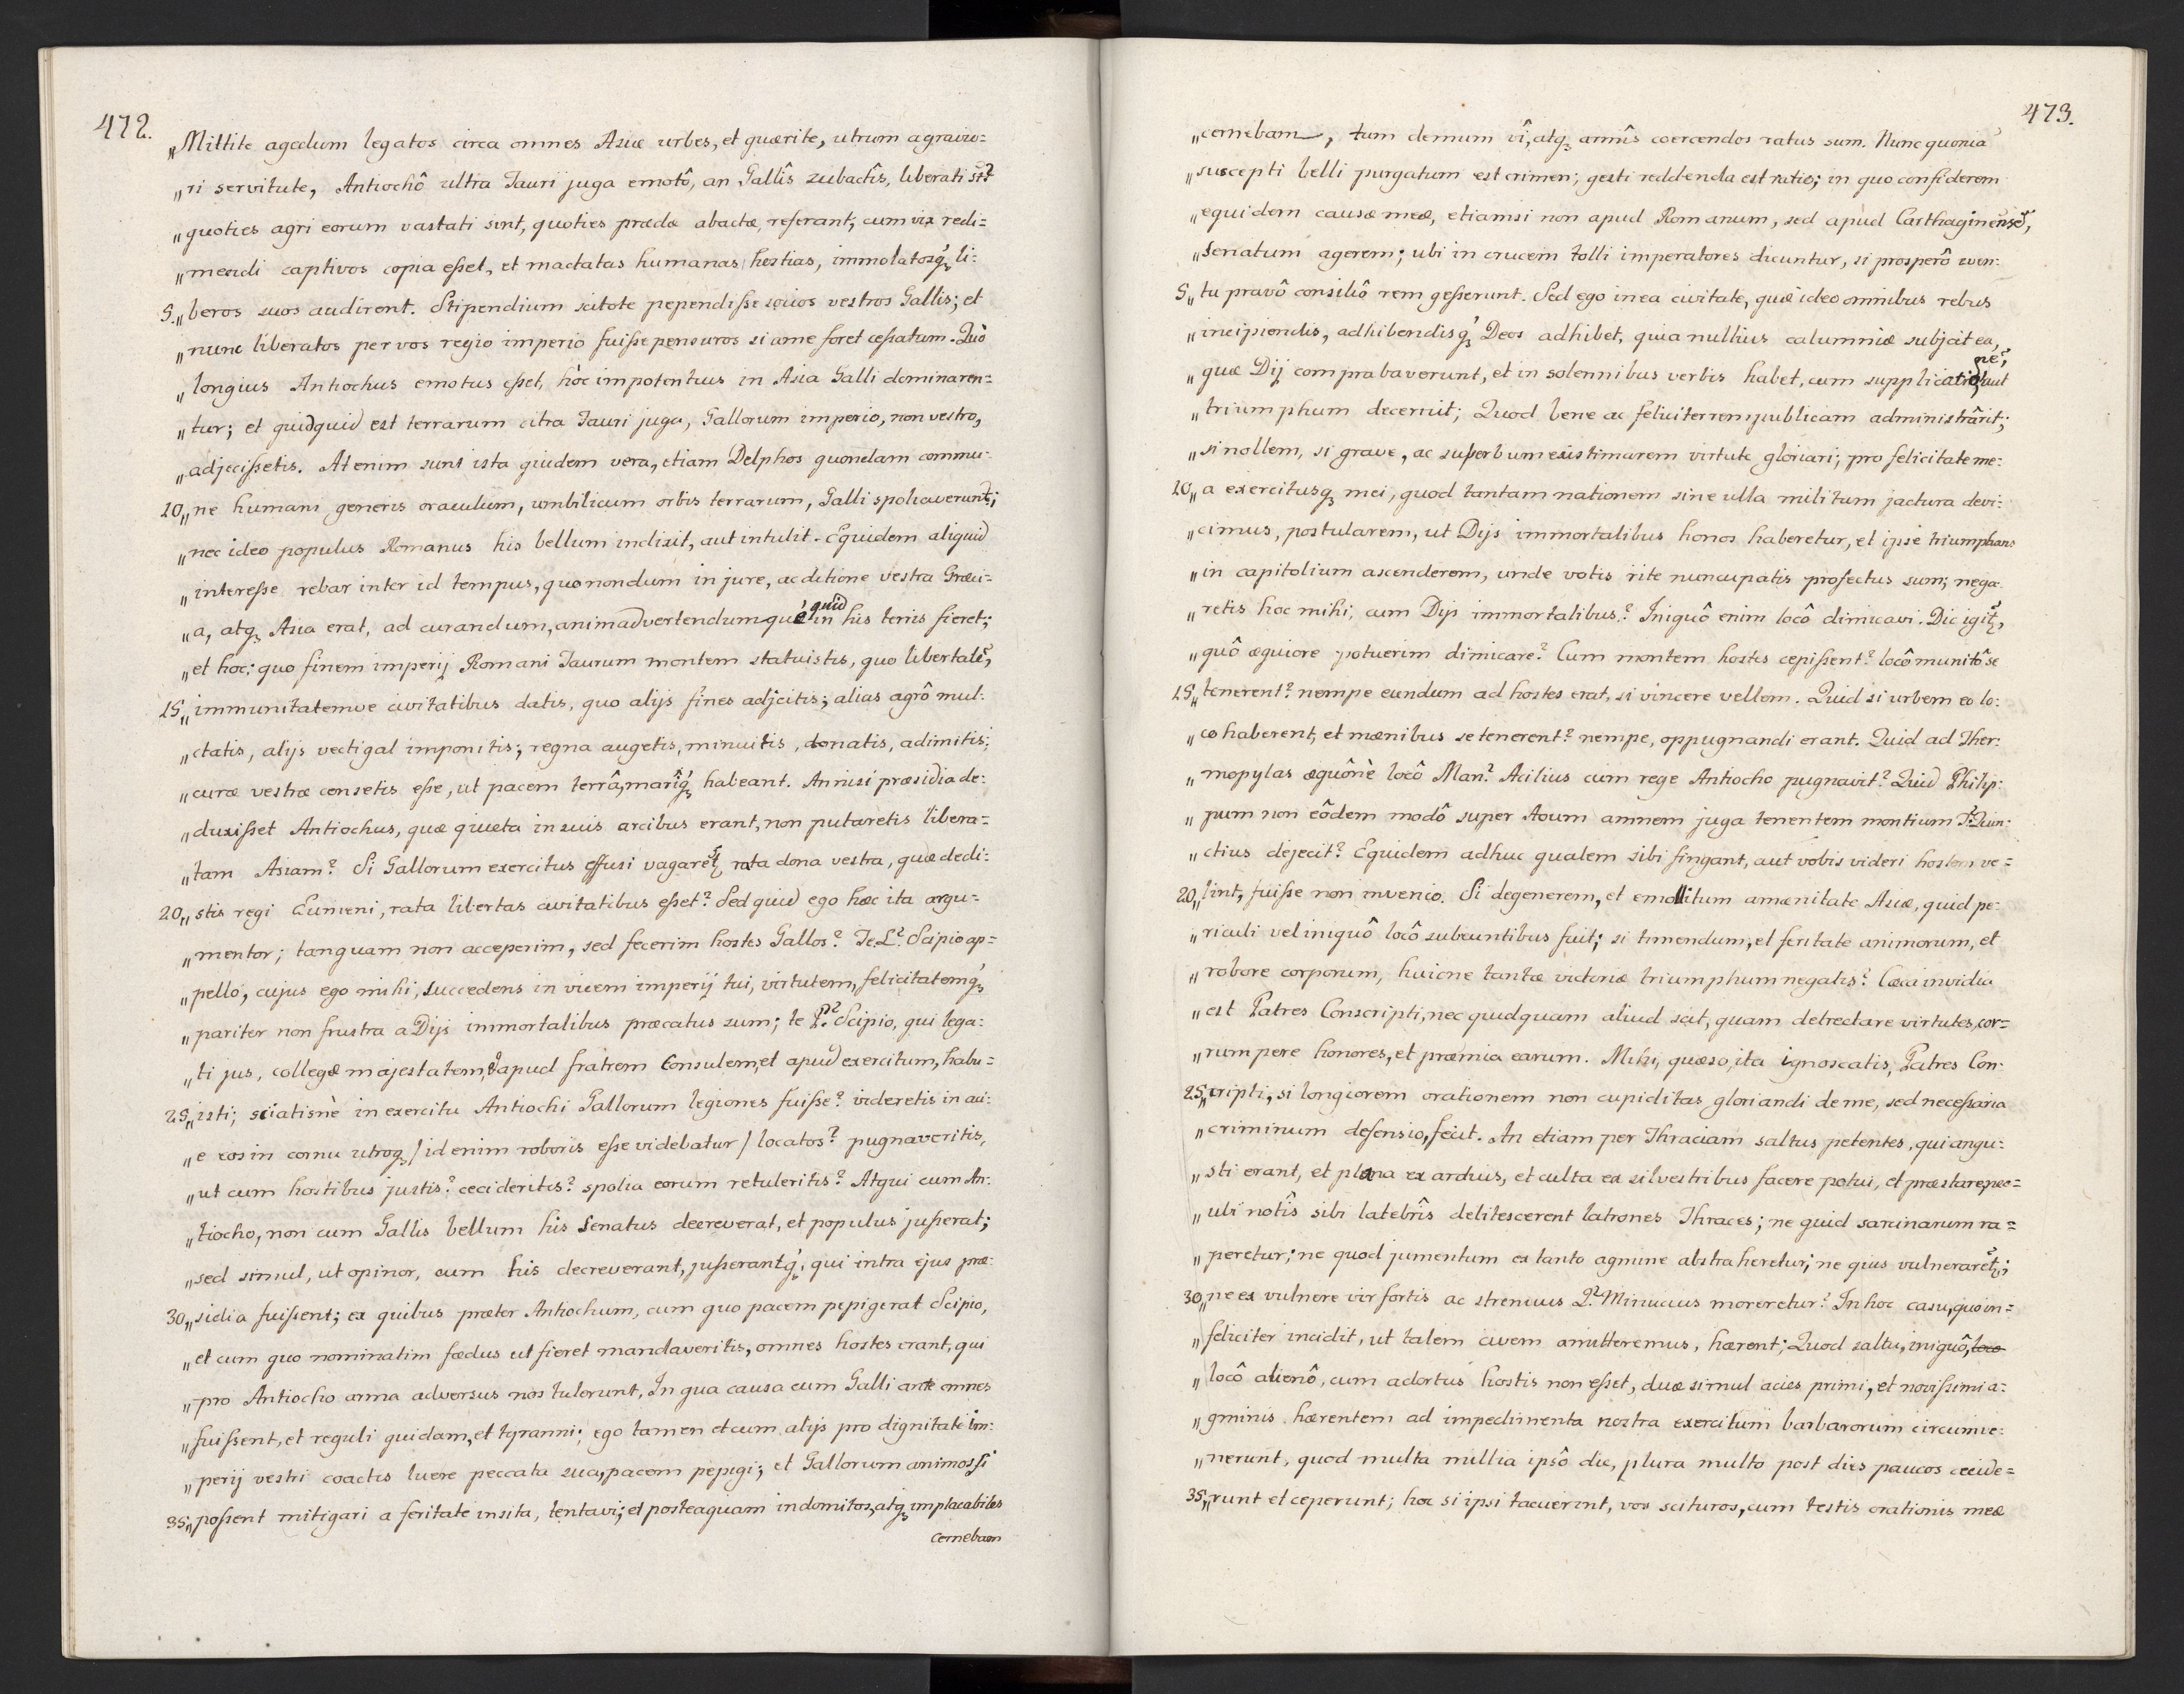 472.
„Mittite agedum legatos circa omnes Asiæ urbes, et quærite, utrum a gravio=
„ri servitute, Antiochô ultra Tauri juga emotô, an Gallîs subactîs, liberati sĩt?
„quoties agri eorum vastati sint, quoties prædæ abactæ, referant, cum vix redi=
„mendi captivos copia eſset, et mactatas humanas hostias, immolatosq́ꝫ li=
5.„beros suos audirent. Stipendium scitote pependiſse socios vestros Gallis; et
„nunc liberatos per vos regio imperio fuiſse pensuros si a me foret ceſsatum. Quò
„longius Antiochus emotus eſset, hòc impotentius in Asia Galli dominaren=
„tur; et quidquid est terrarum citra Tauri juga, Gallorum imperio, non vestro,
„adjeciſsetis. At enim sunt ista quidem vera, etiam Delphos quondam commu=
10„ne humani generis oraculum, umbilicum orbis terrarum, Galli spoliaverunt;
„nec ideo populus Romanus his bellum indixit, aut intulit. Equidem aliquid
„intereſse rebar inter id tempus, quo nondum in jure, ac ditione vestra Græci=
„a, atqꝫ Asia erat, ad curandum, animadvertendumque quid in his terris fieret;
„et hoc: quo finem imperij Romani Taurum montem statuistis, quo libertatẽ,
15„immunitatemve civitatibus datis, quo alijs fines adjcitis; alias agrô mul=
„ctatis, alijs vectigal imponitis; regna augetis, minuitis, donatis, adimitis;
„curæ vestræ censetis eſse, ut pacem terrâ, marîq́ꝫ habeant. An nisi præsidia de=
„duxiſset Antiochus, quæ quieta in suis arcibus erant, non putaretis libera=
„tam Asiam? Si Gallorum exercitus effusi vagarẽtꝫ rata dona vestra, quæ dedi=
20„stis regi Eumeni, rata libertas civitatibus eſset? Sed quid ego hæc ita argu=
„mentor; tanquam non acceperim, sed fecerim hostes Gallos? Te, L? Scipio ap=
„pello, cujus ego mihi, succedens in vicem imperij tui, virtutem, felicitatemq́ꝫ
„pariter non frustra a Dijs immortalibus præcatus sum; te P? Scipio, qui lega=
„ti jus, collegæ majestatem, & apud fratrem Consulem, et apud exercitum, habu=
25„isti; sciatisnè in exercitu Antiochi Gallorum legiones fuiſse? videretis in aci=
„e eos in cornu utroqꝫ / id enim roboris eſse videbatur / locatos? pugnaveritis,
„ut cum hostibus justis? cecideritis? spolia eorum retuleritis? Atqui cum An=
„tiocho, non cum Gallis bellum his Senatus decreverat, et populus juſserat;
„sed simul, ut opinor, cum his decreverant, juſserantq́ꝫ, qui intra ejus præ=
30„sidia fuiſsent; ex quibus præter Antiochum, cum quo pacem pepigerat Scipio,
„et cum quo nominatim fædus ut fieret mandaveritis, omnes hostes erant, qui
„pro Antiocho arma adversus nos tulerunt, In qua causa cum Galli ante omnes
„fuiſsent, et reguli quidam, et tyranni; ego tamen et cum alijs pro dignitate im=
„perij vestri coactis luere peccata sua, pacem pepigi; et Gallorum animos si
35;„poſsent mitigari a feritate insita, tentavi; et posteaquam indomitos, atqꝫ implacabiles
cernebam
473.
„cernebam, tum demum vî, atqꝫ armîs coercendos ratus sum. Nunc quoniã
„suscepti belli purgatum est crimen; gesti reddenda est ratio; in quo confiderem
„equidem causæ meæ, etiamsi non apud Romanum, sed apud Carthaginensẽ,
„Senatum agerem; ubi in crucem tolli imperatores dicuntur, si prosperô even=
5„tu pravô consiliô rem geſserunt. Sed ego in ea civitate, quæ ideo omnibus rebus
„incipiendis, adhibendisq́ꝫ Deos adhibet, quia nullius calumniæ subjcit ea,
„quæ Dij comprabaverunt, et in solennibus verbis habet, cum supplicationẽ, aut
„triumphum decernit; Quod bene ac feliciter rempublicam administrârit;
„si nollem, si grave, ac superbum existimarem virtute gloriari; pro felicitate me=
10„a exercitusqꝫ mei, quod tantam nationem sine ulla militum jactura devi=
„cimus, postularem, ut Dijs immortalibus honos haberetur, et ipse triumphans
„in capitolium ascenderem, unde votis rite nuncupatis profectus sum; nega=
„retis hoc mihi, cum Dijs immortalibus? Iniquô enim locô dimicavi. Dic igit̃ꝫ,
„quô æquiore potuerim dimicare? Cum montem hostes cepiſsent? locô munitô se
15„tenerent? nempe eundum ad hostes erat, si vincere vellem. Quid si urbem eo lo=
„co haberent, et mænibus se tenerent? nempe, oppugnandi erant. Quid ad Ther=
„mopylas æquônè locô Man? Acilius cum rege Antiocho pugnavit? Quid Philip=
„pum non eôdem modô super Aoum amnem juga tenentem montium T? Quin=
„ctius dejecit? Equidem adhuc qualem sibi fingant, aut vobis videri hostem ve=
20„lint, fuiſse non invenio. Si degenerem, et emollitum amænitate Asiæ, quid pe=
„riculi vel iniquô locô subeuntibus fuit; si timendum, et feritate animorum, et
„robore corporum, huicne tantæ victoriæ triumphum negatis? Cæca invidia
„est Patres Conscripti, nec quidquam aliud scit, quam detrectare virtutes, cor=
„rumpere honores, et præmia earum. Mihi, quæso, ita ignoscatis, Patres Con=
25„cripti, si longiorem orationem non cupiditas gloriandi de me, sed neceſsaria
„criminum defensio, fecit. An etiam per Thraciam saltus petentes, qui angu=
„sti erant, et plana ex arduis, et culta ex silvestribus facere potui, et præstare, nec=
„ubi notîs sibi latebrîs delitescerent latrones Thraces; ne quid sarcinarum ra=
„peretur; ne quod jumentum ex tanto agmine abstraheretur; ne quis vulnerarẽtꝫ;
30„ne ex vulnere vir fortis ac strenuus Q? Minucius moreretur? In hoc casu, quo in=
„feliciter incidit, ut talem civem amitteremus, hærent; Quod saltu, iniquô, loco
„locô alienô, cum adortus hostis non eſset, duæ simul acies primi, et noviſsimi a=
„gminis hærentem ad impedimenta nostra exercitum barbarorum circumve=
„nerunt, quod multa millia ipsô die, plura multo post dies paucos cecide=
35„runt et ceperunt; hoc si ipsi tacuerint, vos scituros, cum testis orationis meæ